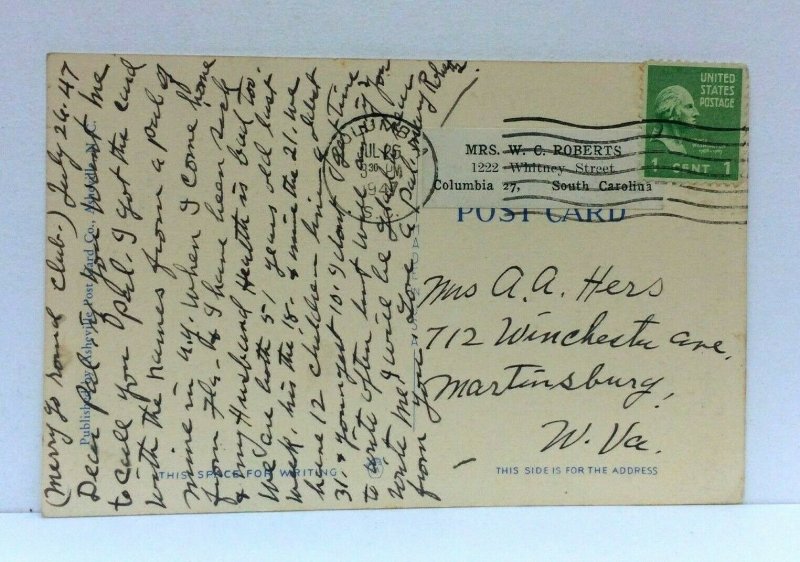 (Merry go round club.) July 26.47
Dear Pal, If you want me
to call you Opal. I got the card
with the names from a pal of
mine in N.Y. When I come home
from Fla. & I have been sick
& my Husband Health is bad too.
We are both 51 years old last
week, his the 18. & mine the 21. we
have 12 children living oldest
31. & youngest 10. I dont get time
to write often but will if you
write me. I will be glad to hear
from you. Love a Pal. Mary
Published by Asheville Post Card Co., Asheville, N. C.
THIS SPACE FOR WRITING
COLUMBIA
JUL 26
8 30 PM
1947
S. C.
MRS. W. C. ROBERTS
1222 Whitney Street
Columbia 27, South Carolina
UNITED
STATES
POSTAGE
1 CENT 1
POST CARD
Mrs A.A. Hers
712 Winchester ave.
Martinsburg,
W. Va.
THIS SIDE IS FOR THE ADDRESS